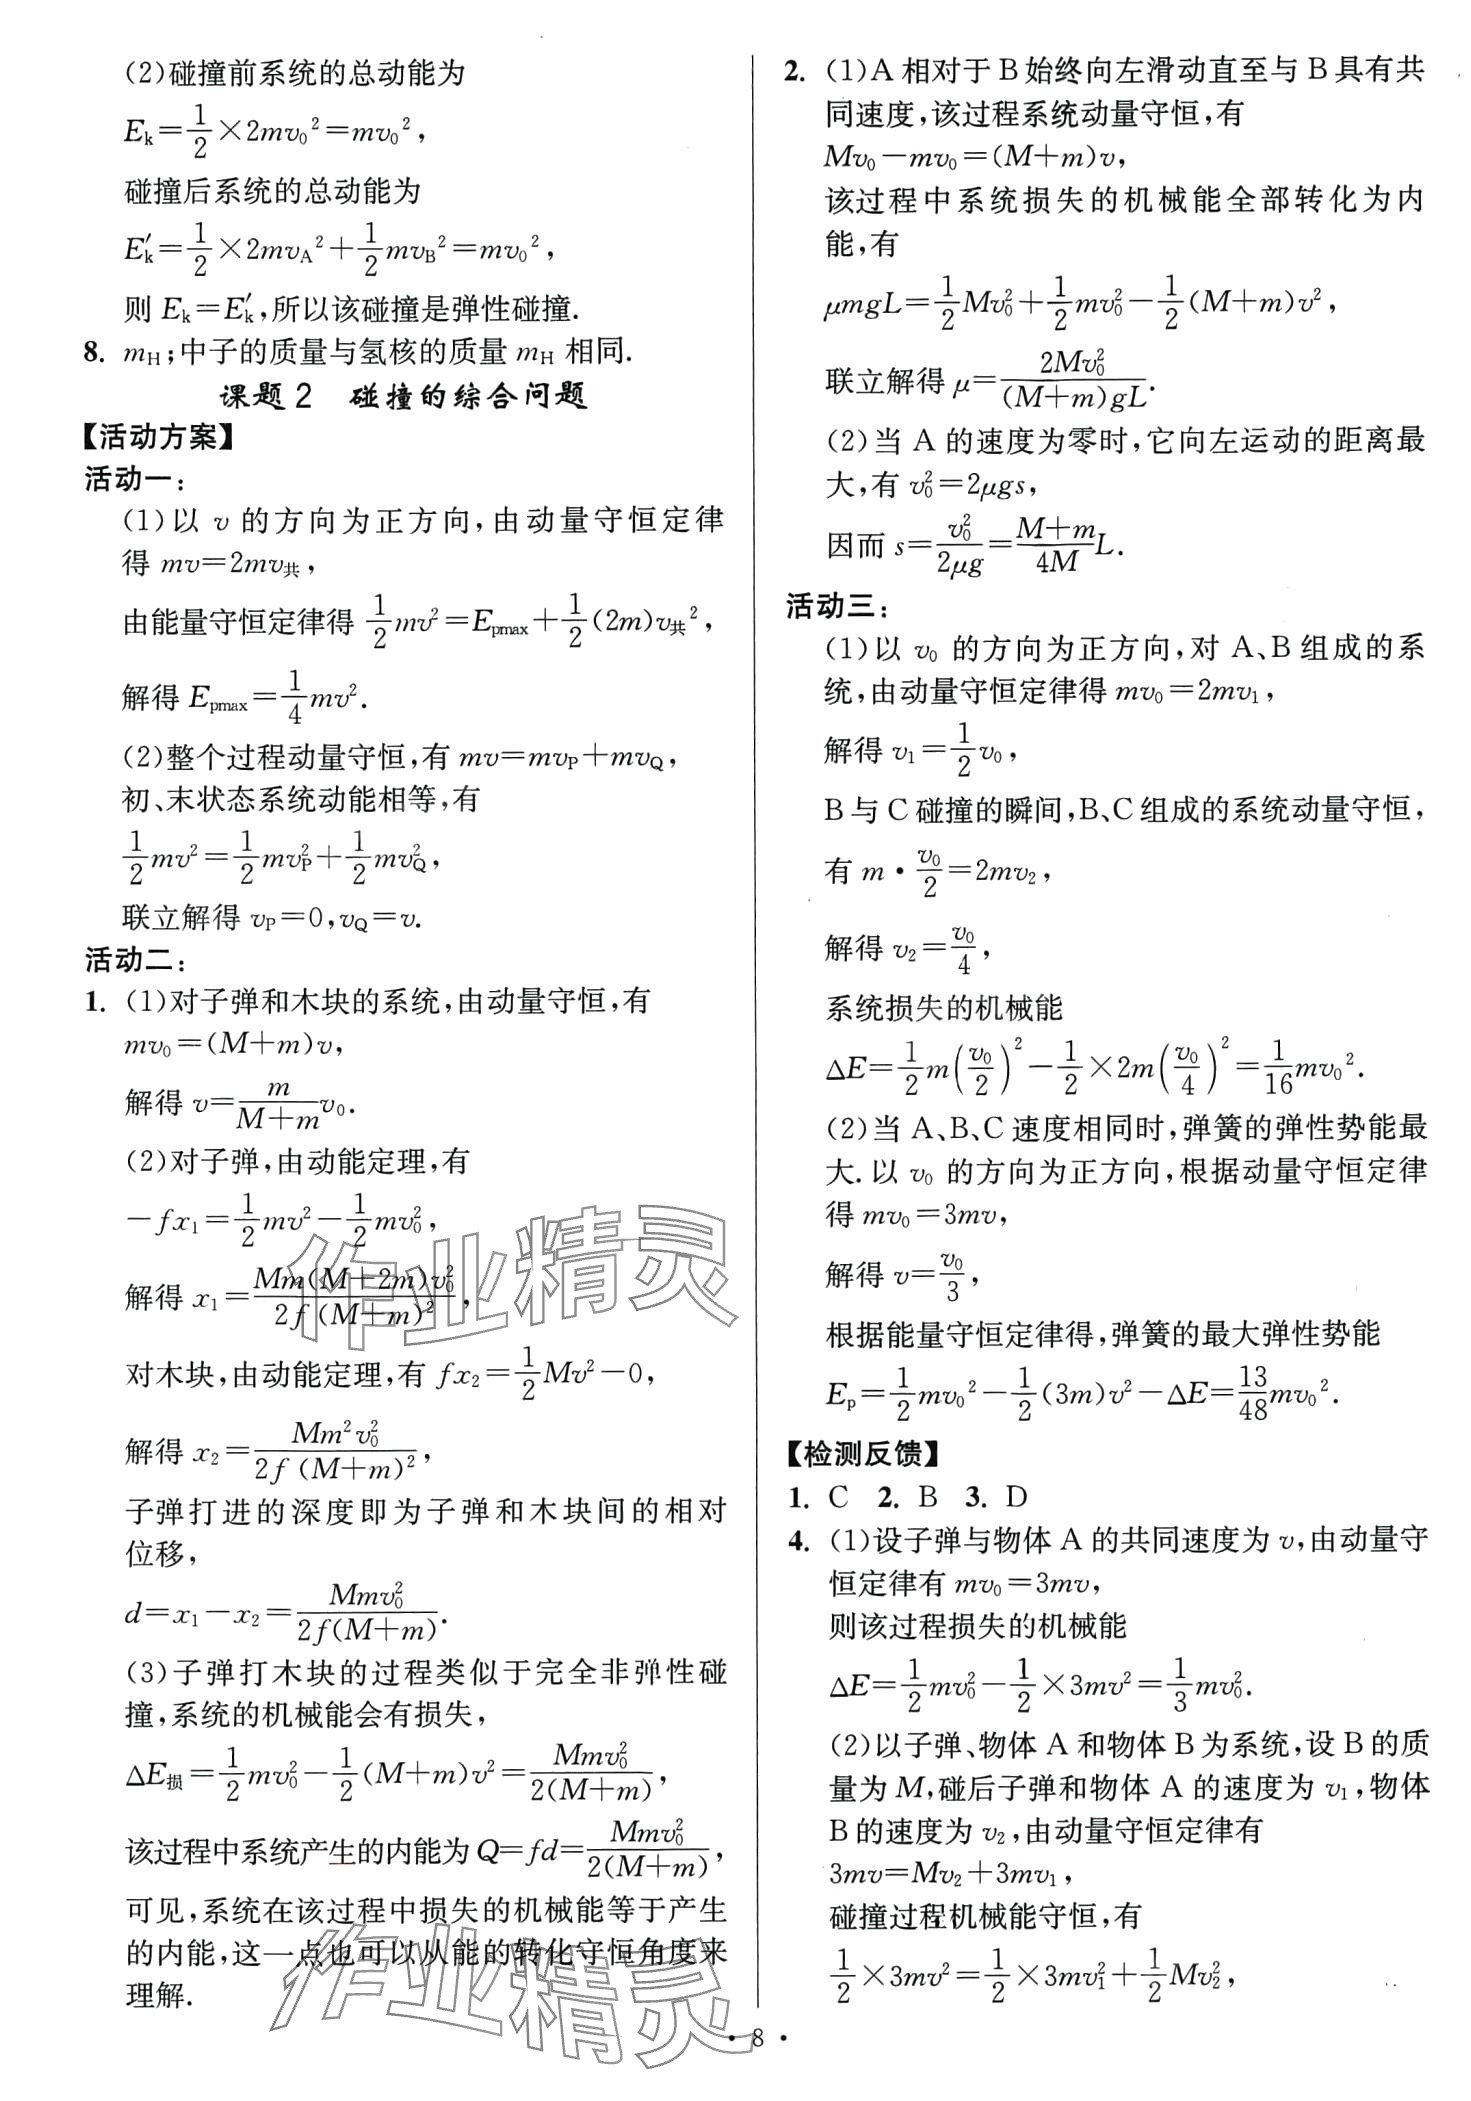 (2)碰撞前系统的总动能为
Eₖ=1/2×2mv₀²=mv₀²,
碰撞后系统的总动能为
E′ₖ=1/2×2mv_A²+1/2mv_B²=mv₀²,
则 Eₖ=E′ₖ,所以该碰撞是弹性碰撞.
8. m_H;中子的质量与氢核的质量 m_H 相同.
课题2 碰撞的综合问题
【活动方案】
活动一:
(1)以 v 的方向为正方向,由动量守恒定律
得 mv=2mv共,
由能量守恒定律得 1/2mv²=Epmax+1/2(2m)v共²,
解得 Epmax=1/4mv².
(2)整个过程动量守恒,有 mv=mv_P+mv_Q,
初、末状态系统动能相等,有
1/2mv²=1/2mv_P²+1/2mv_Q²,
联立解得 v_P=0,v_Q=v.
活动二:
1. (1)对子弹和木块的系统,由动量守恒,有
mv₀=(M+m)v,
解得 v=m/(M+m)v₀.
(2)对子弹,由动能定理,有
-fx₁=1/2mv²-1/2mv₀²,
解得 x₁=Mm(M+2m)v₀²/2f(M+m)²,
对木块,由动能定理,有 fx₂=1/2Mv²-0,
解得 x₂=Mm²v₀²/2f(M+m)²,
子弹打进的深度即为子弹和木块间的相对
位移,
d=x₁-x₂=Mmv₀²/2f(M+m).
(3)子弹打木块的过程类似于完全非弹性碰
撞,系统的机械能会有损失,
ΔE损=1/2mv₀²-1/2(M+m)v²=Mmv₀²/2(M+m),
该过程中系统产生的内能为 Q=fd=Mmv₀²/2(M+m),
可见,系统在该过程中损失的机械能等于产生
的内能,这一点也可以从能的转化守恒角度来
理解.
2. (1)A 相对于 B 始终向左滑动直至与 B 具有共
同速度,该过程系统动量守恒,有
Mv₀-mv₀=(M+m)v,
该过程中系统损失的机械能全部转化为内
能,有
μmgL=1/2Mv₀²+1/2mv₀²-1/2(M+m)v²,
联立解得 μ=2Mv₀²/(M+m)gL.
(2)当 A 的速度为零时,它向左运动的距离最
大,有 v₀²=2μgs,
因而 s=v₀²/2μg=(M+m)/4M L.
活动三:
(1)以 v₀ 的方向为正方向,对 A、B 组成的系
统,由动量守恒定律得 mv₀=2mv₁,
解得 v₁=1/2v₀,
B 与 C 碰撞的瞬间,B、C 组成的系统动量守恒,
有 m·v₀/2=2mv₂,
解得 v₂=v₀/4,
系统损失的机械能
ΔE=1/2m(v₀/2)²-1/2×2m(v₀/4)²=1/16mv₀².
(2)当 A、B、C 速度相同时,弹簧的弹性势能最
大.以 v₀ 的方向为正方向,根据动量守恒定律
得 mv₀=3mv,
解得 v=v₀/3,
根据能量守恒定律得,弹簧的最大弹性势能
Eₚ=1/2mv₀²-1/2(3m)v²-ΔE=13/48mv₀².
【检测反馈】
1. C 2. B 3. D
4. (1)设子弹与物体 A 的共同速度为 v,由动量守
恒定律有 mv₀=3mv,
则该过程损失的机械能
ΔE=1/2mv₀²-1/2×3mv²=1/3mv₀².
(2)以子弹、物体 A 和物体 B 为系统,设 B 的质
量为 M,碰后子弹和物体 A 的速度为 v₁,物体
B 的速度为 v₂,由动量守恒定律有
3mv=Mv₂+3mv₁,
碰撞过程机械能守恒,有
1/2×3mv²=1/2×3mv₁²+1/2Mv₂²,
·8·
作业精灵
作业精灵